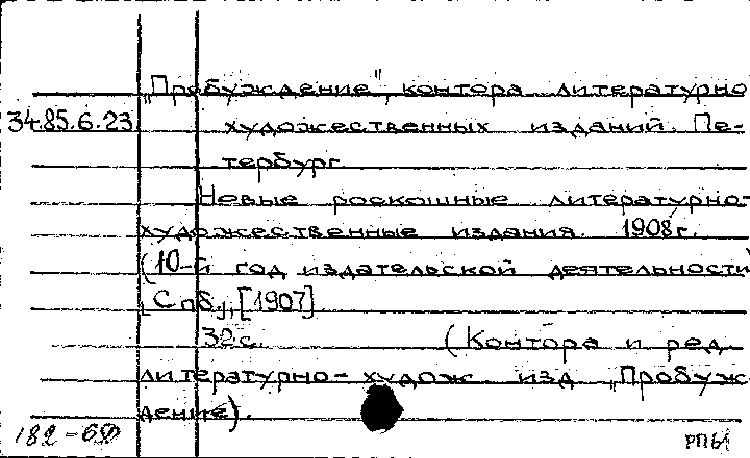 „Пробуждение", контора литературно
34.85.6.23 художественных изданий. Пе-
тербург
Новые роскошные литературно-
художественные издания. 1908 г.
(10-й год издательской деятельности
[Спб.], [1907]
32 с. (Контора и ред.
литературно-худож. изд „Пробуж
дение).
182-60
РПБ